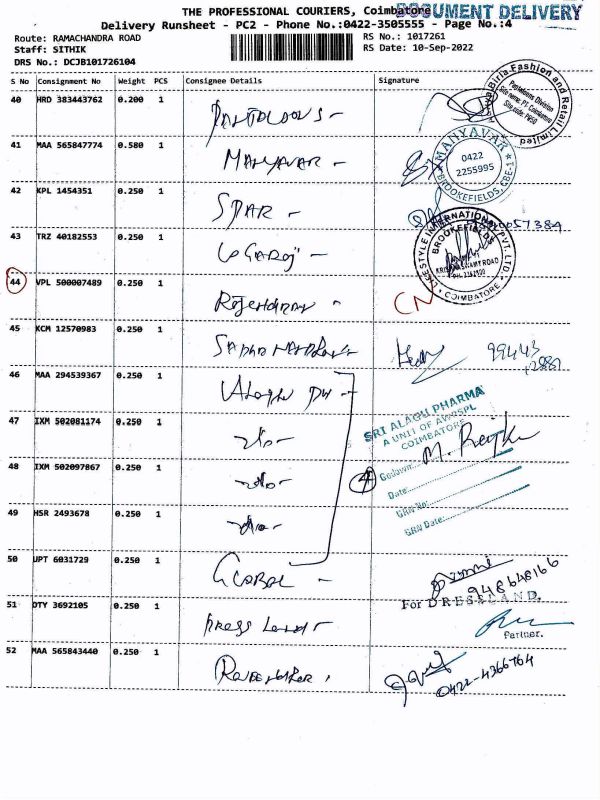 THE PROFESSIONAL COURIERS, Coimbatore DOCUMENT DELIVERY
Delivery Runsheet - PC2 - Phone No.:0422-3505555 - Page No.:4
Route: RAMACHANDRA ROAD
RS No.: 1017261
Staff: SITHIK
RS Date: 10-Sep-2022
DRS No.: DCJB101726104
S No Consignment No Weight PCS Consignee Details Signature
40 HRD 383443762 0.200 1 PANTALOONS -
Birla Fashion and Retail Limited
Pantaloons Division
41 MAA 565847774 0.580 1 MANYAVAR -
MANYAVAR
0422
2255995
BROOKEFIELDS, CBE-1
42 KPL 1454351 0.250 1 STAR -
43 TRZ 40182553 0.250 1 LOGARAJ -
LIFESTYLE INTERNATIONAL PVT. LTD.
BROOKEFIELDS
KRISHNASWAMY ROAD
COIMBATORE
44 VPL 500007489 0.250 1 Rajendiran -
CN
45 KCM 12570983 0.250 1
99443
46 MAA 294539367 0.250 1
47 IXM 502081174 0.250 1 -do-
SRI ALAGU PHARMA
A UNIT OF AWSPL
COIMBATORE
48 IXM 502097867 0.250 1 -do-
4
Godown
Date:
GRN No:
GRN Date:
49 HSR 2493678 0.250 1 -do-
50 UPT 6031729 0.250 1 GLOBAL -
948648166
51 DTY 3692105 0.250 1
For DRESSLAND,
Partner.
52 MAA 565843440 0.250 1
0422-4366764